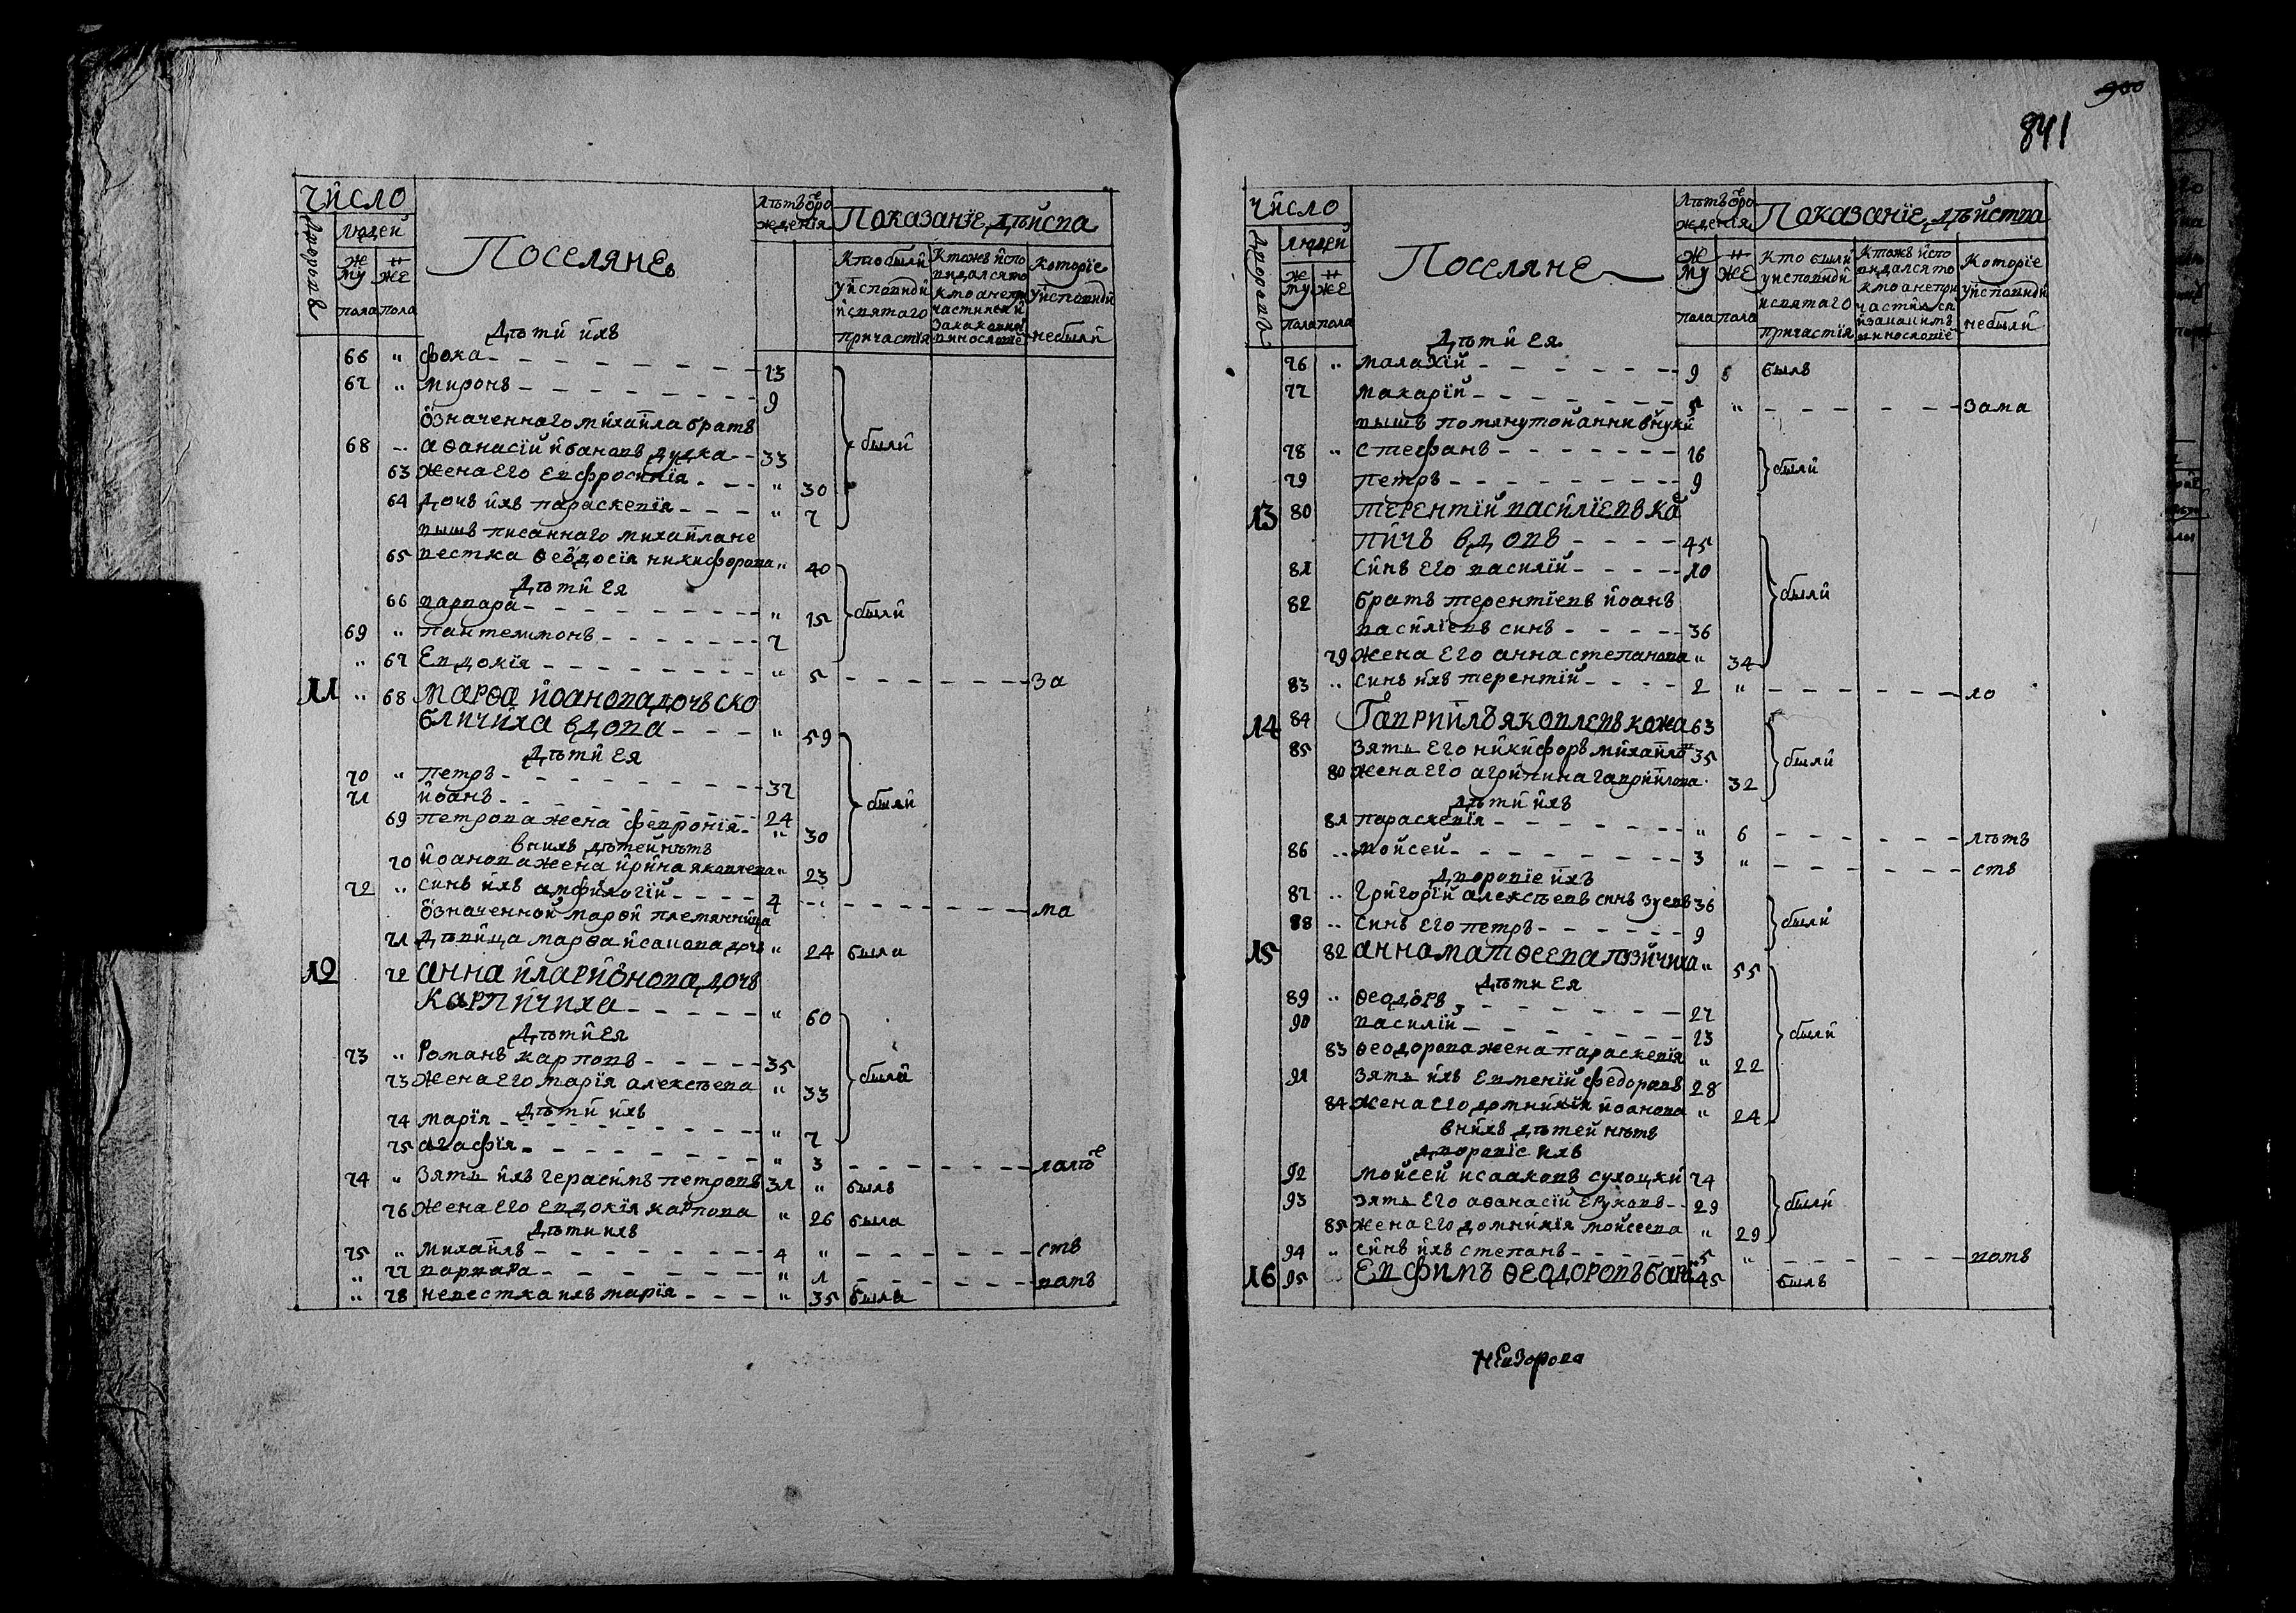 число
дворовъ
людей
мужеска пола
женска пола
Поселяне
лѣтъ ѿ рождения
Показанїе дѣйсва
Кто были у исповѣди и святаго причастїя
Кто жъ исповѣдался токмо а не причастился и за какимъ винословїем
которїе у исповѣди не были
Дѣти ихъ
66 " фока - - - 13
67 " миронъ - - - 9
означеннаго михаила братъ
68 -- афанасїй ивановъ дудка - - 33 были
63 жена его евфросинїя - - - " 30
64 дочь ихъ параскевїя - - - " 7
вышъ писаннаго михаила не
65 вестка феодосїя никифорова " 40
Дѣти ея
66 варвара - - - " 15 были
69 " пантелимонъ - - - 7
" 67 Евдокїя - - - " 5 - - - за
11 " 68 Марфа иоанова дочь ско
бличиха вдова - - - " 59
Дѣти ея
70 " петръ - - - 37
71 иоанъ - - - 24 были
69 петрова жена февронїя - " 30
в нихъ дѣтей нѣтъ
70 иоанова жена ирина яковлева " 23
72 " синъ ихъ амфилогїй - - - 4 - - - ма
означенной марфи племянница
71 дѣвица марфа исакова дочь " 24 была
12 72 анна иларионова дочь
карпичиха - - - " 60
Дѣти ея
73 " Романъ карповъ - - - 35
73 жена его марїя алексѣева " 33 были
Дѣти ихъ
74 марїя - - - " 7
75 агафїя - - - " 3 - - - лолѣ
74 " зять ихъ герасимъ петровъ 31 " былъ
76 жена его евдокїя карпова " 26 была
Дѣти ихъ
75 " михаилъ - - - 4 " - - - ств
" 77 варвара - - - " 1 - - - вавъ
" 78 невестка ихъ марїя - - - " 35 была
900
841
число
дворовъ
людей
мужеска пола
женска пола
Поселяне
лѣтъ ѿ рождения
Показанїе дѣйства
Кто были у исповѣди и святаго причастїя
Кто жъ исповѣдался токмо а не причастился и за какимъ винословїе
Которїе у исповѣди не были
Дѣти ея
76 " малахїй - - - 9 былъ
77 макарїй - - - 5 " - - - зама
вышъ помянутой анни внуки
78 " стефанъ - - - 16 были
79 петръ - - - 9
13 80 Терентїй василїевъ ко
вичъ вдовъ - - - 45
81 синъ его василїй - - - 10
82 братъ терентїевъ иоанъ были
василїевъ синъ - - - 36
79 жена его анна степанова " 34
83 " синъ ихъ терентїй - - - 2 " - - - ло
14 84 Гаврїилъ яковлевъ кожа 63
85 зять его никифоръ михайло 35 были
80 жена его агрипина гаврїилова 32
Дѣти ихъ
81 параскевїя - - - " 6 - - - лѣтъ
86 " мойсей - - - 3 " - - - ств
Дворовїе ихъ
87 " григорїй алексѣевъ синъ зуевъ 36 были
88 " синъ его петръ - - - 9
15 82 анна матфеева пзйчиха " 55
Дѣти ея
89 " феодоръ - - - 27
90 василїй - - - 23 были
83 феодорова жена параскевїя " 22
91 зять ихъ евменїй федоровъ 28
84 жена его домникїя иоанова " 24
в нихъ дѣтей нѣтъ
Дворовїе ихъ
92 мойсей исааковъ сухоцки 74
93 зять его афанасїй ермковъ - - 29 были
85 жена его домникїя мойсеева " 29
94 " синъ ихъ степанъ - - - 5 " - - - вать
16 95 Евфимъ феодоровъ бон 45 былъ
невзорова